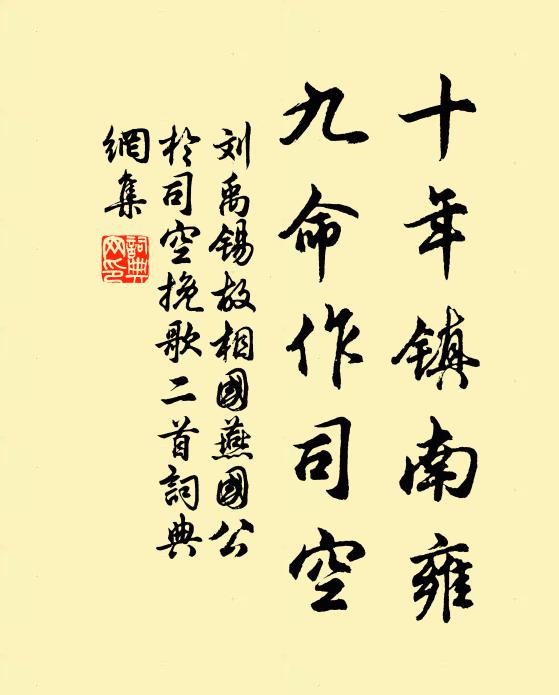 十年镇南雍
九命作司空
刘禹锡故相國燕國公
於司空挽歌二首詞典
網集
詞典
网印